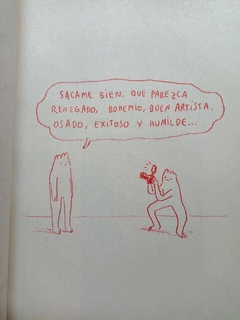 SÁCAME BIEN. QUE PAREZCA
RENEGADO, BOHEMIO, BUEN ARTISTA.
OSADO, EXITOSO Y HUMILDE...